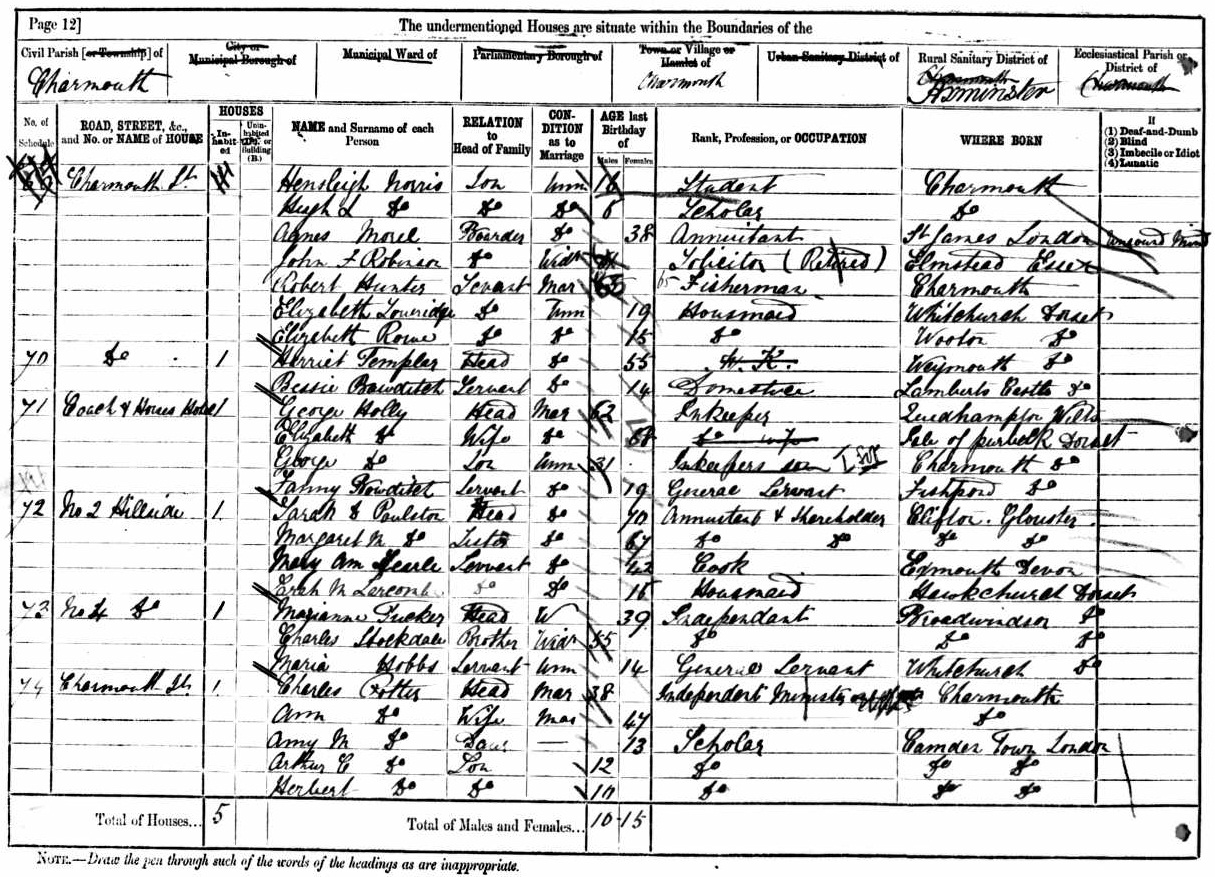 Page 12] The undermentioned Houses are situate within the Boundaries of the
Civil Parish [or Township] of City or Municipal Borough of Municipal Ward of Parliamentary Borough of Town or Village or Hamlet of Urban Sanitary District of Rural Sanitary District of Ecclesiastical Parish or District of
Charmouth Charmouth Charmouth Axminster Charmouth
No. of Schedule ROAD, STREET, &c., and No. or NAME of HOUSE HOUSES In-habit-ed Unin-habited (U.), or Building (B.) NAME and Surname of each Person RELATION to Head of Family CON-DITION as to Marriage AGE last Birthday of Males Females Rank, Profession, or OCCUPATION WHERE BORN If (1) Deaf-and-Dumb (2) Blind (3) Imbecile or Idiot (4) Lunatic
Charmouth St Hensleigh Norris Son Unm 16 Student Charmouth
Hugh L Do Do Do 8 Scholar Do
Agnes Morel Boarder Do 38 Annuitant St James London Unsound Mind
John F Robinson Do Widr Solicitor (Retired) Elmstead Essex
Robert Hunter Servant Mar 65 Fisherman Charmouth
Elizabeth Loveridge Do Unm 19 Housmaid Whitchurch Dorset
Elizabeth Rowe Do Do 15 Do Wooton Do
70 Do 1 Harriet Templar Head Do 55 Weymouth Do
Bessie Bowditch Servant Do 14 Domestice Lamberts Castle Do
71 Coach & Horses Hotel 1 George Holly Head Mar 62 Inkeeper Quidhampton Wilts
Elizabeth Do Wife Do 68 Do wife Isle of purbeck Dorset
George Do Son Unm 31 Inkeepers son Charmouth Do
Fanny Bowditch Servant Do 19 General Servant Fishpond Do
72 No 2 Hillside 1 Sarah E Poulston Head Do 70 Annuitant & Shareholder Clifton Glouster
Margaret M Do Sister Do 67 Do Do Do Do
Mary Ann Searle Servant Do 42 Cook Exmouth Devon
M Do Do 16 Housmaid Hawkchurch Dorset
73 No 4 Do 1 Marianne Tucker Head W 39 Independant Broadwindsor Do
Charles Stockdale Brother Widr 55 Do Do Do
Maria Hobbs Servant Unm 14 General Servant Whitchurch Do
74 Charmouth St 1 Charles Potter Head Mar 38 Independent Minister Charmouth
Ann Do Wife Mar 47 Do
Amy M Do Daur — 13 Scholar Camden Town London
Arthur C Do Son 12 Do Do Do
Herbert Do Do 10 Do Do Do
Total of Houses... 5 Total of Males and Females... 10 15
NOTE.—Draw the pen through such of the words of the headings as are inappropriate.